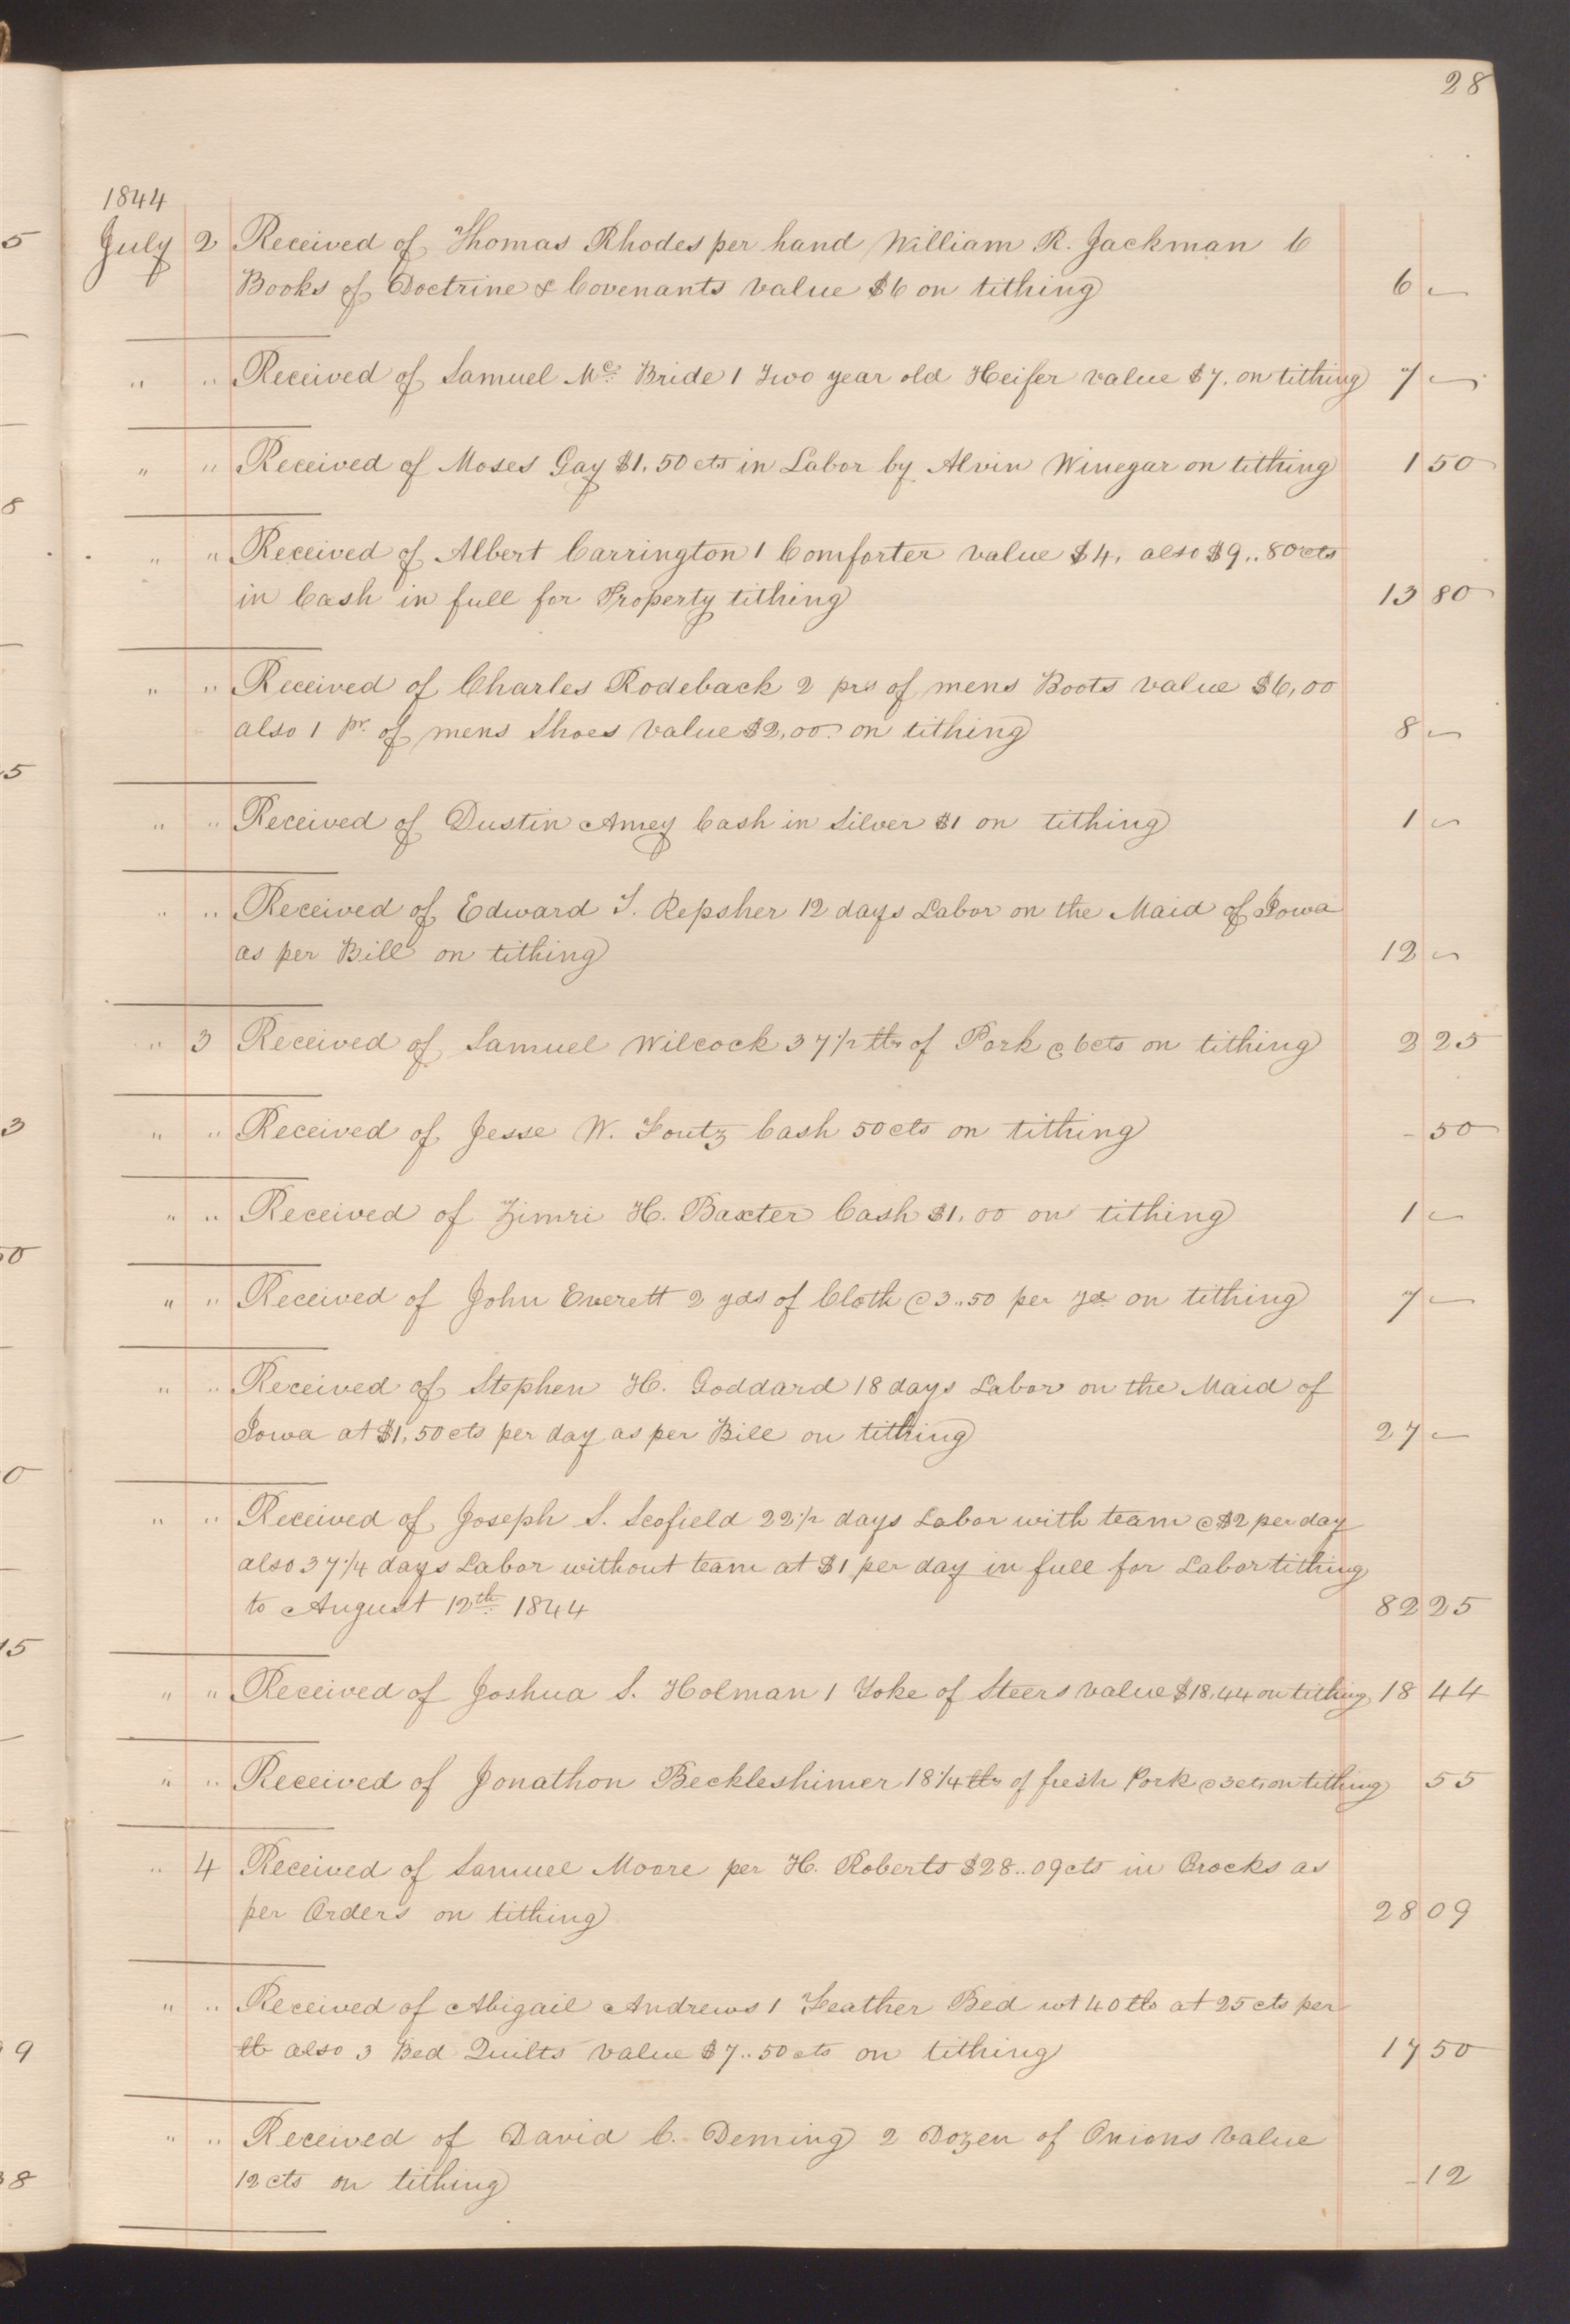 28
1844
July 2 Received of Thomas Rhodes per hand William R. Jackman 6
Books of Doctrine & Covenants value $6 on tithing 6 -
" " Received of Samuel Mc. Bride 1 Two year old Heifer value $7. on tithing 7 -
" " Received of Moses Gay $1,50 cts in Labor by Alvin Winegar on tithing 1 50
" " Received of Albert Carrington 1 Comforter value $4, also $9..80 cts
in Cash in full for Property tithing 13 80
" " Received of Charles Rodeback 2 prs of mens Boots value $6,00
also 1 pr. of mens Shoes value $2,00. on tithing 8 -
" " Received of Dustin Amey Cash in Silver $1 on tithing 1 -
" " Received of Edward T. Repsher 12 days Labor on the Maid of Iowa
as per Bill on tithing 12 -
" 3 Received of Samuel Wilcock 37 1/2 lbs of Pork @ 6cts on tithing 2 25
" " Received of Jesse W. Foutz Cash 50 cts on tithing - 50
" " Received of Zimri H. Baxter Cash $1,00 on tithing 1 -
" " Received of John Everett 2 yds of Cloth @ 3..50 per yd on tithing 7 -
" " Received of Stephen H. Goddard 18 days Labor on the Maid of
Iowa at $1,50 cts per day as per Bill on tithing 27 -
" " Received of Joseph S. Scofield 22 1/2 days Labor with team @ $2 per day
also 37 1/4 days Labor without team at $1 per day in full for Labor tithing
to August 12th. 1844 82 25
" " Received of Joshua S. Holman 1 Yoke of Steers value $18,44 on tithing 18 44
" " Received of Jonathon Beckleshimer 18 1/4 lbs of fresh Pork @ 3cts on tithing 55
" 4 Received of Samuel Moore per H. Roberts $28..09 cts in Crocks as
per Orders on tithing 28 09
" " Received of Abigail Andrews 1 Feather Bed wt 40 lbs at 25 cts per
lb also 3 Bed Quilts value $7..50 cts on tithing 17 50
" " Received of David C. Deming 2 Dozen of Onions value
12 cts on tithing - 12